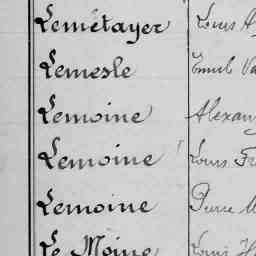 Lemétayer Louis
Lemesle Émile
Lemoine
Lemoine Louis
Lemoine Pierre
Le Moine Louis